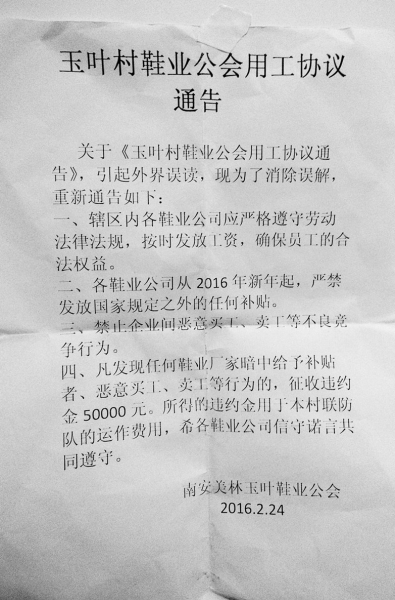 玉叶村鞋业公会用工协议
通告
关于《玉叶村鞋业公会用工协议通
告》，引起外界误读，现为了消除误解，
重新通告如下：
一、辖区内各鞋业公司应严格遵守劳动
法律法规，按时发放工资，确保员工的合
法权益。
二、各鞋业公司从 2016 年新年起，严禁
发放国家规定之外的任何补贴。
三、禁止企业间恶意买工、卖工等不良竞
争行为。
四、凡发现任何鞋业厂家暗中给予补贴
者、恶意买工、卖工等行为的，征收违约
金 50000 元。所得的违约金用于本村联防
队的运作费用，希各鞋业公司信守诺言共
同遵守。
南安美林玉叶鞋业公会
2016.2.24